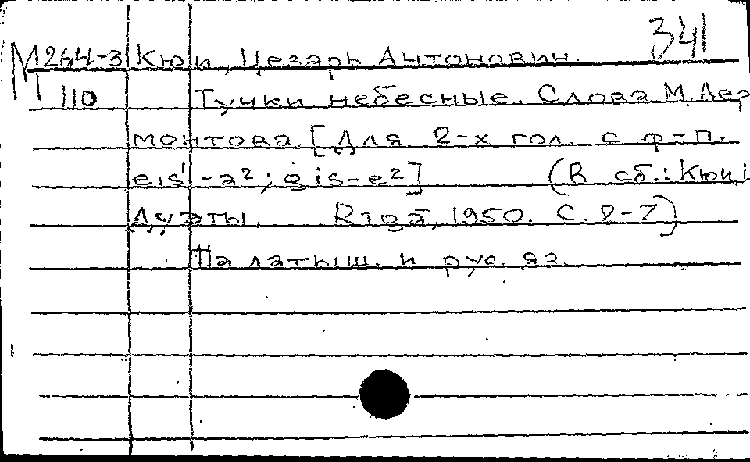 341
М264-3 Кюи, Цезарь Антонович.
110 Тучки небесные. Слова М.Лер
монтова. [Для 2-х гол. с ф-п.
eis¹-a²; gis-e²] (В сб.: Кюи.
Дуэты. Rīgā, 1950. С. 2-7)
На латыш. и рус. яз.